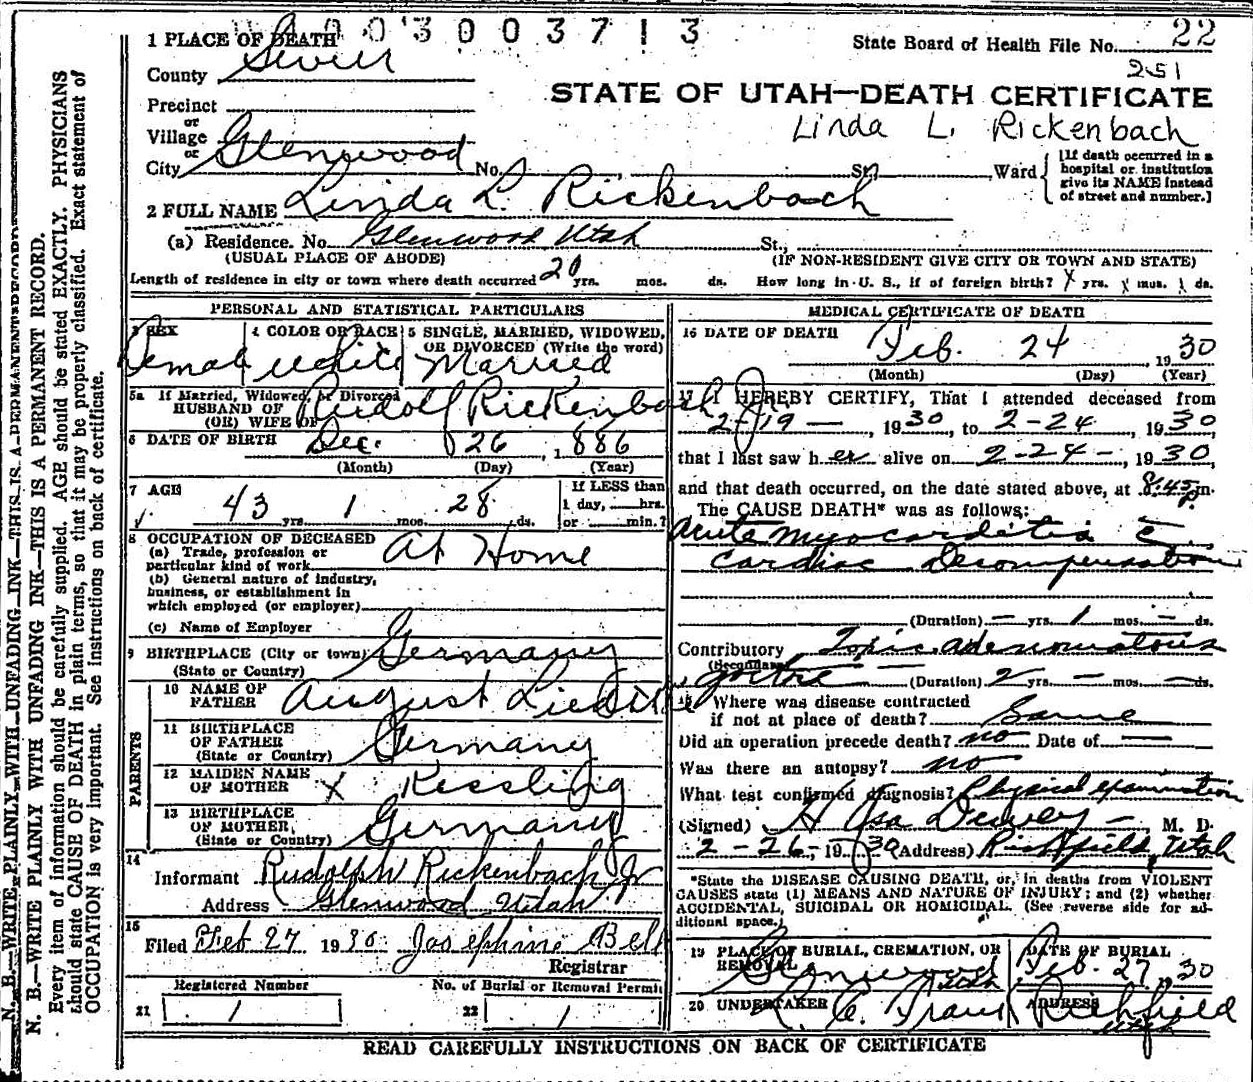 1 PLACE OF DEATH 0 0 3 0 0 3 7 1 3
State Board of Health File No. 22
County Sevier
251
STATE OF UTAH—DEATH CERTIFICATE
Precinct
Linda L. Rickenbach
or
Village
or
City Glenwood No. St. Ward
[If death occurred in a
hospital or institution
give its NAME instead
of street and number.]
2 FULL NAME Linda L. Rickenbach
(a) Residence. No. Glenwood Utah St.,
(USUAL PLACE OF ABODE) (IF NON-RESIDENT GIVE CITY OR TOWN AND STATE)
Length of residence in city or town where death occurred 20 yrs. mos. ds. How long in U. S., if of foreign birth? x yrs. x mos. ds.
PERSONAL AND STATISTICAL PARTICULARS
3 SEX
Female
4 COLOR OR RACE
White
5 SINGLE, MARRIED, WIDOWED,
OR DIVORCED (Write the word)
Married
5a If Married, Widowed, or Divorced
HUSBAND OF
(OR) WIFE OF Rudolf Rickenbach
6 DATE OF BIRTH Dec. 26, 1886
(Month) (Day) (Year)
7 AGE
43 yrs. 1 mos. 28 ds.
If LESS than
1 day, hrs.
or min.?
8 OCCUPATION OF DECEASED
(a) Trade, profession or
particular kind of work At Home
(b) General nature of industry,
business, or establishment in
which employed (or employer)
(c) Name of Employer
9 BIRTHPLACE (City or town) Germany
(State or Country)
10 NAME OF
FATHER August
11 BIRTHPLACE
OF FATHER Germany
(State or Country)
12 MAIDEN NAME
OF MOTHER X Kessling
13 BIRTHPLACE
OF MOTHER Germany
(State or Country)
PARENTS
14
Informant Rudolph Rickenbach Jr
Address Glenwood Utah
15
Filed Feb 27 1930 Josephine Bell
Registrar
Registered Number No. of Burial or Removal Permit
21 1 22 1
MEDICAL CERTIFICATE OF DEATH
16 DATE OF DEATH
Feb. 24 1930
(Month) (Day) (Year)
17 I HEREBY CERTIFY, That I attended deceased from
2-19-, 1930, to 2-24-, 1930,
that I last saw her alive on 2-24-, 1930,
and that death occurred, on the date stated above, at 8:45 p m.
The CAUSE DEATH* was as follows:
Acute myocarditis c̄
Cardiac Decompensation
(Duration) — yrs. 1 mos. — ds.
Contributory Toxic adenomatous
(Secondary) goitre (Duration) 2 yrs. — mos. — ds.
18 Where was disease contracted
if not at place of death? Same
Did an operation precede death? no Date of —
Was there an autopsy? no
What test confirmed diagnosis? Physical examination
(Signed) H Asa Dewey — M. D.
2-26-, 1930 (Address) Richfield, Utah
*State the DISEASE CAUSING DEATH, or, in deaths from VIOLENT
CAUSES state (1) MEANS AND NATURE OF INJURY; and (2) whether
ACCIDENTAL, SUICIDAL OR HOMICIDAL. (See reverse side for ad-
ditional space.)
19 PLACE OF BURIAL, CREMATION, OR
REMOVAL
Glenwood Utah
DATE OF BURIAL
Feb. 27, 30
20 UNDERTAKER
ADDRESS
Richfield
Utah
READ CAREFULLY INSTRUCTIONS ON BACK OF CERTIFICATE
N. B.—WRITE PLAINLY WITH UNFADING INK—THIS IS A PERMANENT RECORD
N. B.—WRITE PLAINLY WITH UNFADING INK—THIS IS A PERMANENT RECORD.
Every item of information should be carefully supplied. AGE should be stated EXACTLY. PHYSICIANS
should state CAUSE OF DEATH in plain terms, so that it may be properly classified. Exact statement of
OCCUPATION is very important. See instructions on back of certificate.